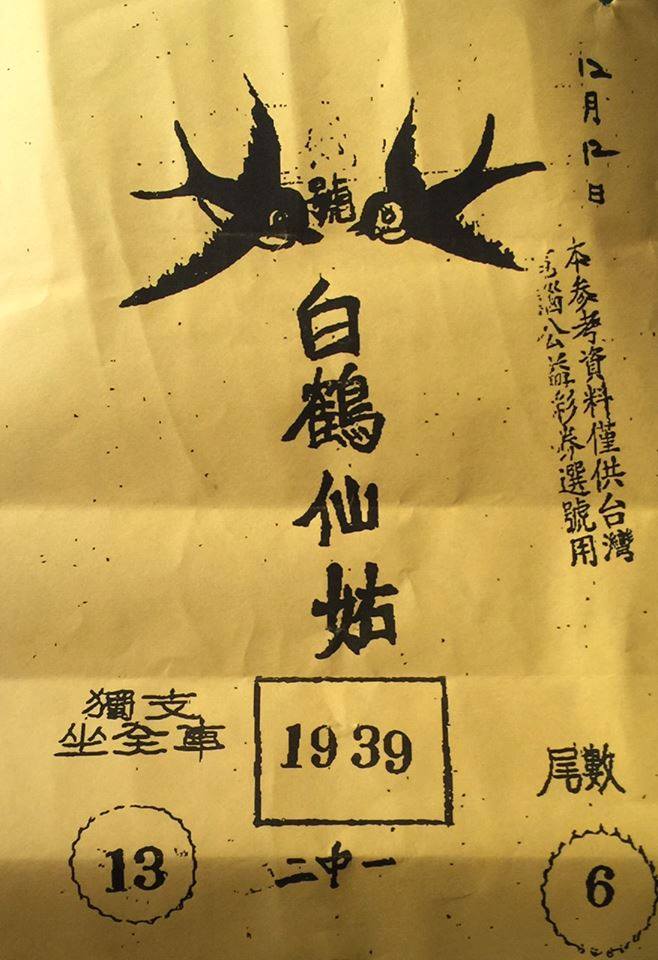 12月12日
本參考資料僅供台灣
電腦公益彩券選號用
號
白鶴仙姑
獨支
坐全車
13
19 39
二中一
尾數
6